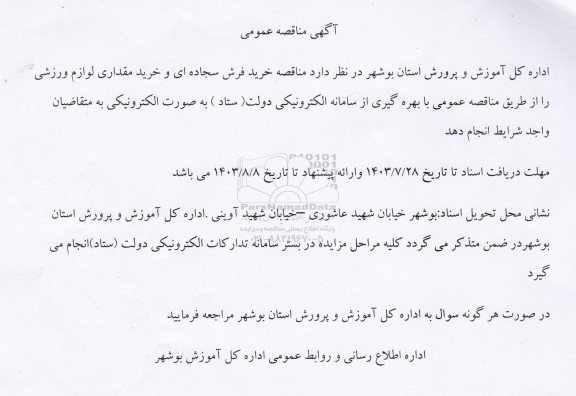 آگهی مناقصه عمومی
اداره کل آموزش و پرورش استان بوشهر در نظر دارد مناقصه خرید فرش سجاده ای و خرید مقداری لوازم ورزشی
را از طریق مناقصه عمومی با بهره گیری از سامانه الکترونیکی دولت( ستاد ) به صورت الکترونیکی به متقاضیان
واجد شرایط انجام دهد
مهلت دریافت اسناد تا تاریخ ۱۴۰۳/۷/۲۸ وارائه پیشنهاد تا تاریخ ۱۴۰۳/۸/۸ می باشد
ParsNamadData
نشانی محل تحویل اسناد:بوشهر خیابان شهید عاشوری –خیابان شهید آوینی .اداره کل آموزش و پرورش استان
پایگاه اطلاع رسانی مناقصه و مزایده
بوشهردر ضمن متذکر می گردد کلیه مراحل مزایده در بستر سامانه تدارکات الکترونیکی دولت (ستاد)انجام می
گیرد
در صورت هر گونه سوال به اداره کل آموزش و پرورش استان بوشهر مراجعه فرمایید
اداره اطلاع رسانی و روابط عمومی اداره کل آموزش بوشهر